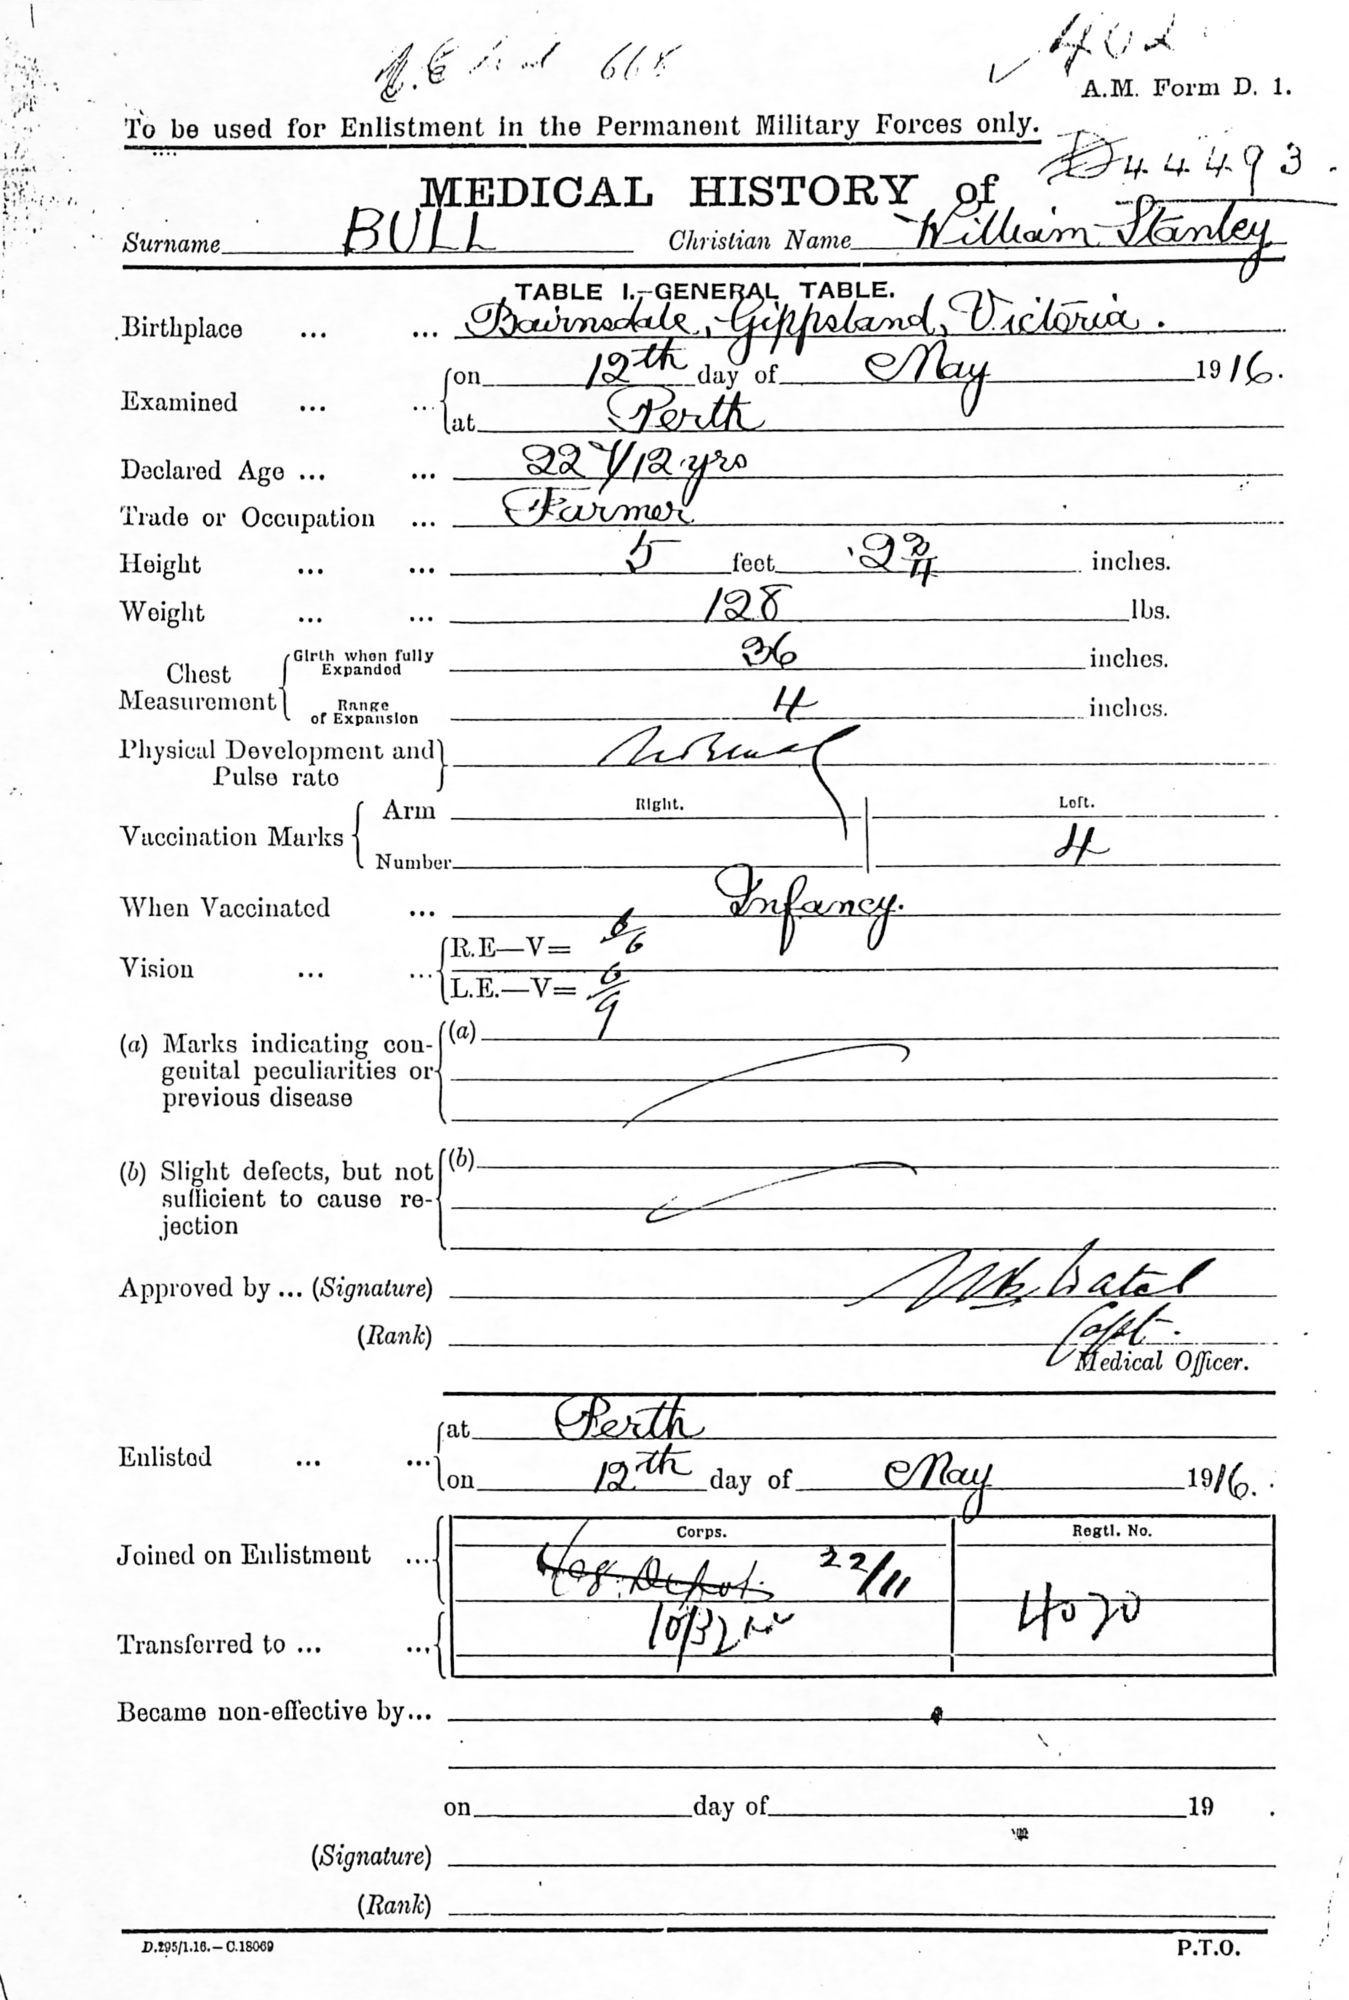 668
402
A.M. Form D. 1.
To be used for Enlistment in the Permanent Military Forces only.
D44493.
MEDICAL HISTORY of
Surname BULL Christian Name William Stanley
TABLE I.—GENERAL TABLE.
Birthplace ... ... Bairnsdale, Gippsland, Victoria.
Examined ... ... on 12th day of May 1916.
at Perth
Declared Age ... ... 22 /12 yrs
Trade or Occupation ... Farmer
Height ... ... 5 feet 2 3/4 inches.
Weight ... ... 128 lbs.
Chest Measurement Girth when fully Expanded 36 inches.
Range of Expansion 4 inches.
Physical Development and Pulse rate Normal
Vaccination Marks Arm Right. Left.
Number 4
When Vaccinated ... Infancy.
Vision ... ... R.E—V= 6/6
L.E.—V= 6/9
(a) Marks indicating con- (a)
genital peculiarities or
previous disease
(b) Slight defects, but not (b)
sufficient to cause re-
jection
Approved by ... (Signature)
(Rank) Capt.
Medical Officer.
Enlisted ... ... at Perth
on 12th day of May 1916.
Corps. Regtl. No.
Joined on Enlistment ... Depot 22/11
4070
Transferred to ... ... 10/32
Became non-effective by...
on day of 19 .
(Signature)
(Rank)
D.295/1.16.—C.18069
P.T.O.